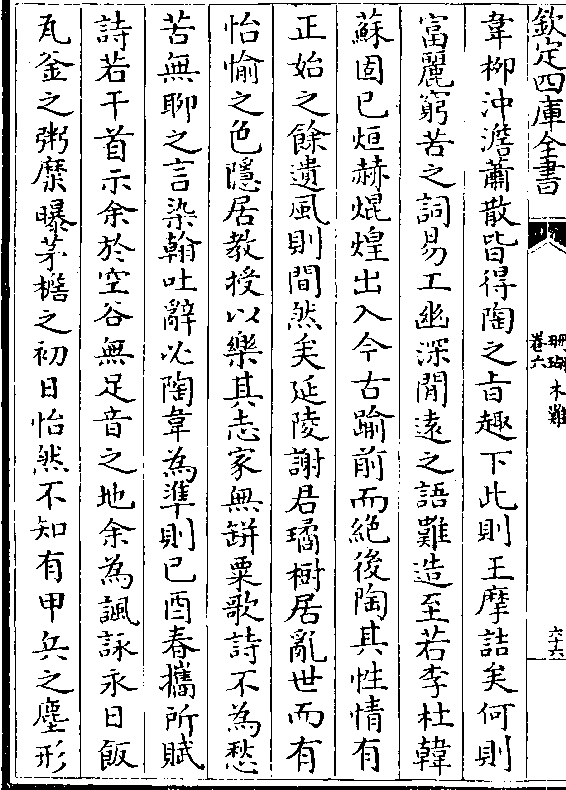 欽定四庫全書
珊瑚木難
卷六
六十六
韋柳沖澹蕭散皆得陶之旨趣下此則王摩詰矣何則
富麗窮苦之詞易工幽深閒遠之語難造至若李杜韓
蘇固已烜赫焜煌出入今古踰前而絕後陶其性情有
正始之餘遺風則間然矣延陵謝君璚樹居亂世而有
怡愉之色隱居教授以樂其志家無缾粟歌詩不為愁
苦無聊之言染翰吐辭必陶韋為準則已酉春攜所賦
詩若干首示余於空谷無足音之地余為諷詠永日飯
瓦釜之粥糜曝茅檐之初日怡然不知有甲兵之塵形